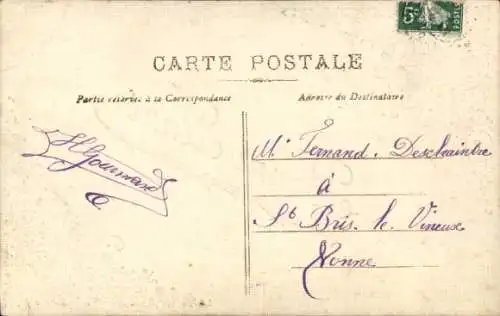 5c
POSTES
CARTE POSTALE
Partie réservée à la Correspondance
Adresse du Destinataire
Mr Fernand Deschaintre
à
St Bris le Vineux
Yonne